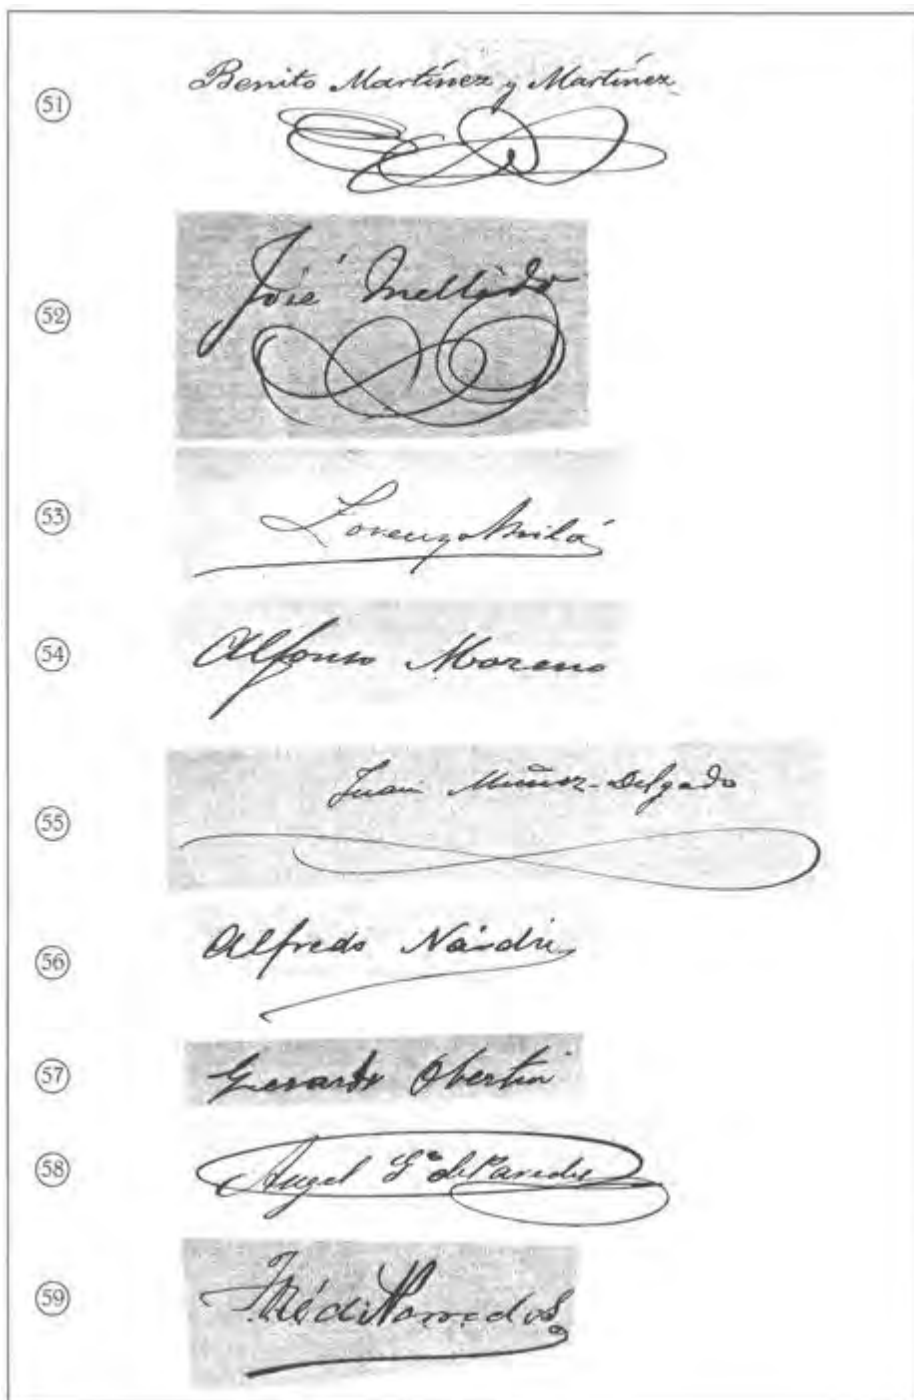 51 Benito Martínez y Martínez
52 José Mellado
53 Lorenzo Avilá
54 Alfonso Moreno
55 Juan Muñoz-Delgado
56 Alfredo
57 Gerardo Obertin
58 Angel Gª de Paredes
59